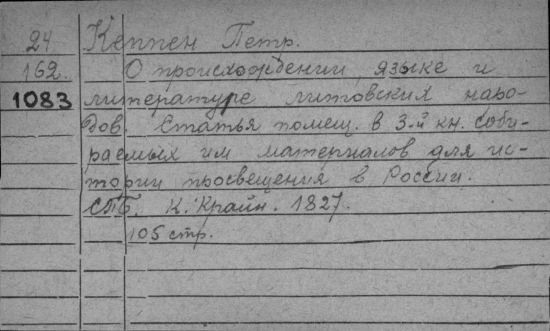 24 Кеппен Петр.
162. О происхождении, языке и
1083 литературе литовских наро-
дов. Статья помещ. в 3-й кн. соби-
раемых им материалов для ис-
тории просвещения в России.
СПБ. К. Крайн. 1827.
105 стр.